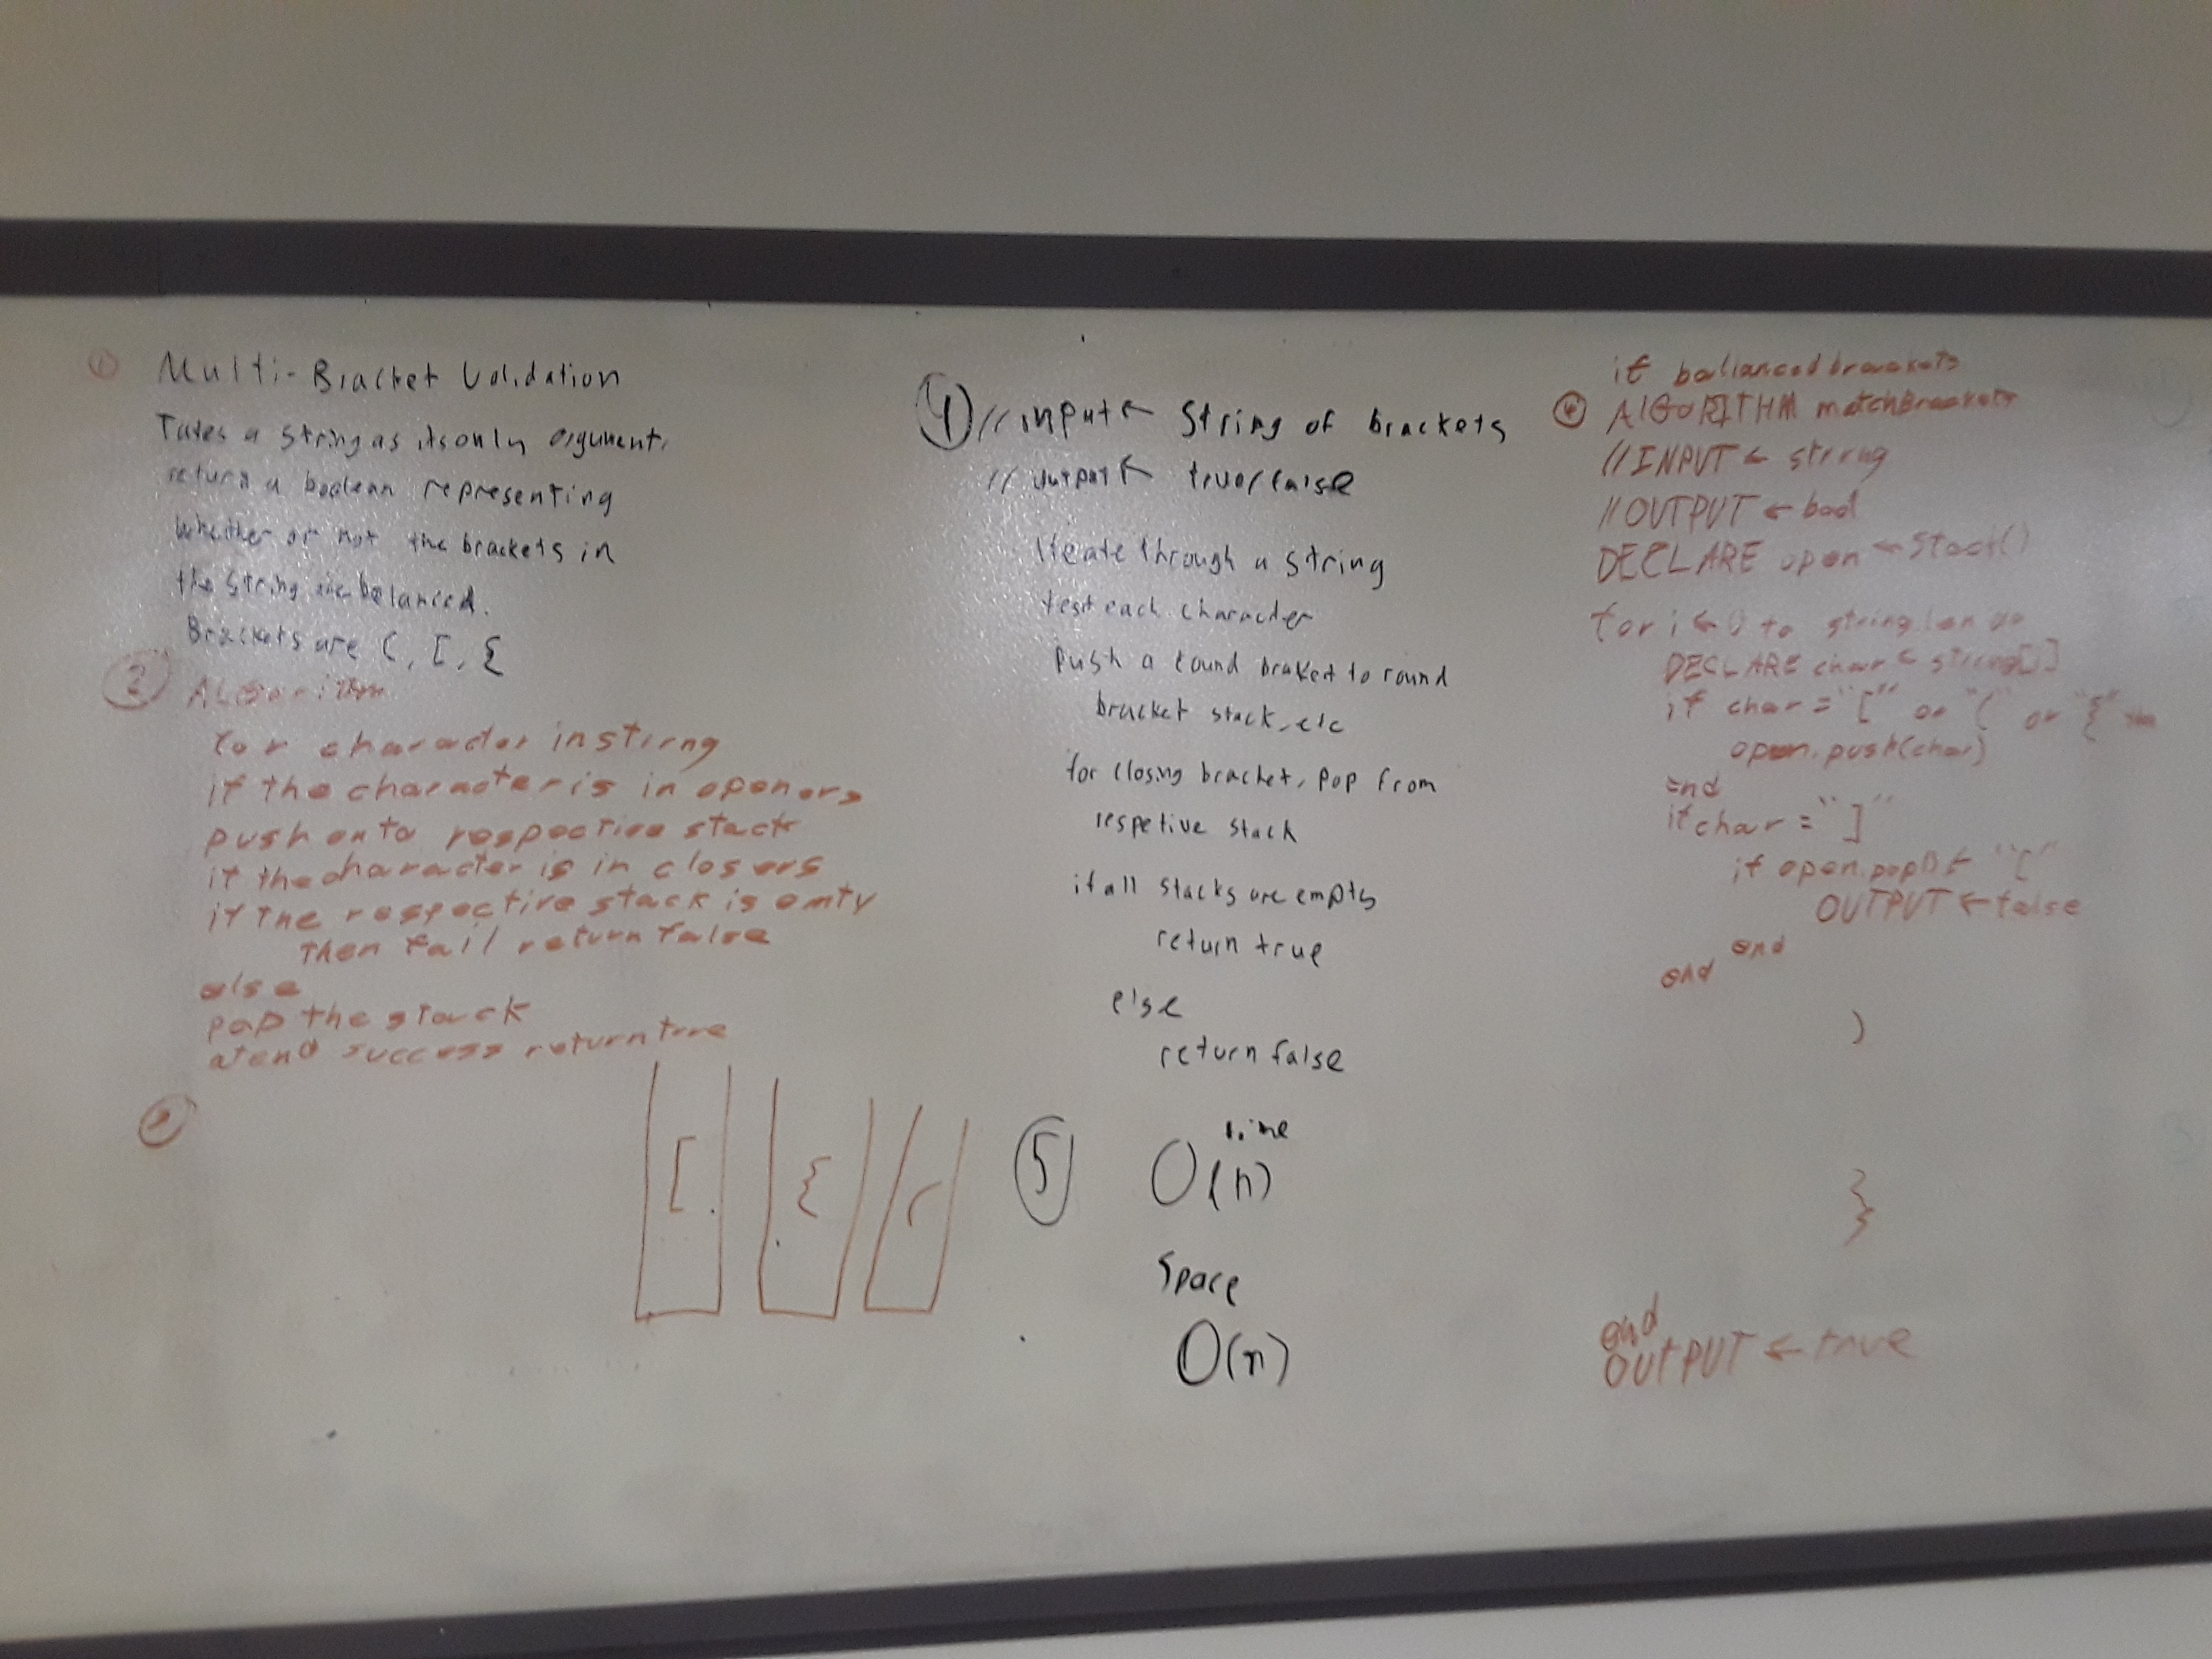 ① Multi-Bracket Validation
Takes a string as its only argument,
return a boolean representing
whether or not the brackets in
the string are balanced.
Brackets are (, [, {
② Algorithm
for character in stirng
if the character is in openers
push onto respective stack
if the character is in closers
if the respective stack is emty
then fail return false
else
pop the stack
at end success return true
[ { (
④ // input ← string of brackets
// output ← true/false
Iterate through a string
test each character
push a round braket to round
bracket stack, etc
for closing bracket, pop from
respetive stack
if all stacks are empty
return true
else
return false
⑤ time
O(n)
Space
O(n)
if ballanced brackets
④ ALGORITHM matchBrackets
// INPUT ← string
// OUTPUT ← bool
DECLARE open ← Stack()
for i ← 0 to string.len do
DECLARE char ← string[i]
if char = "[" or "(" or "{"
open.push(char)
end
if char = "]"
if open.pop() ≠ "["
OUTPUT ← false
end
end
)
}
end
OUTPUT ← true